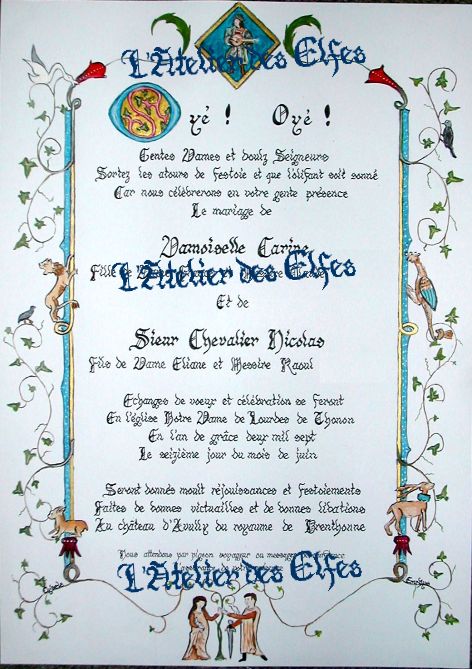 L'Atelier des Elfes
Oyé ! Oyé !
Gentes Dames et doulz Seigneurs
Sortez les atours de festoie et que l'olifant soit sonné
Car nous célèbrerons en votre gente présence
Le mariage de
Damoiselle Carine
Fille de
L'Atelier des Elfes
Et de
Sieur Chevalier Nicolas
Fils de Dame Eliane et Messire Raoul
Echanges de voeux et célébration se feront
En l'église Notre Dame de Lourdes de Thonon
En l'an de grâce deux mil sept
Le seizième jour du mois de juin
Seront donnés moult réjouissances et festoiements
Faites de bonnes victuailles et de bonnes libations
Au château d'Avully du royaume de Brenthonne
Nous attendons par pigeon voyageur ou messager
L'Atelier des Elfes